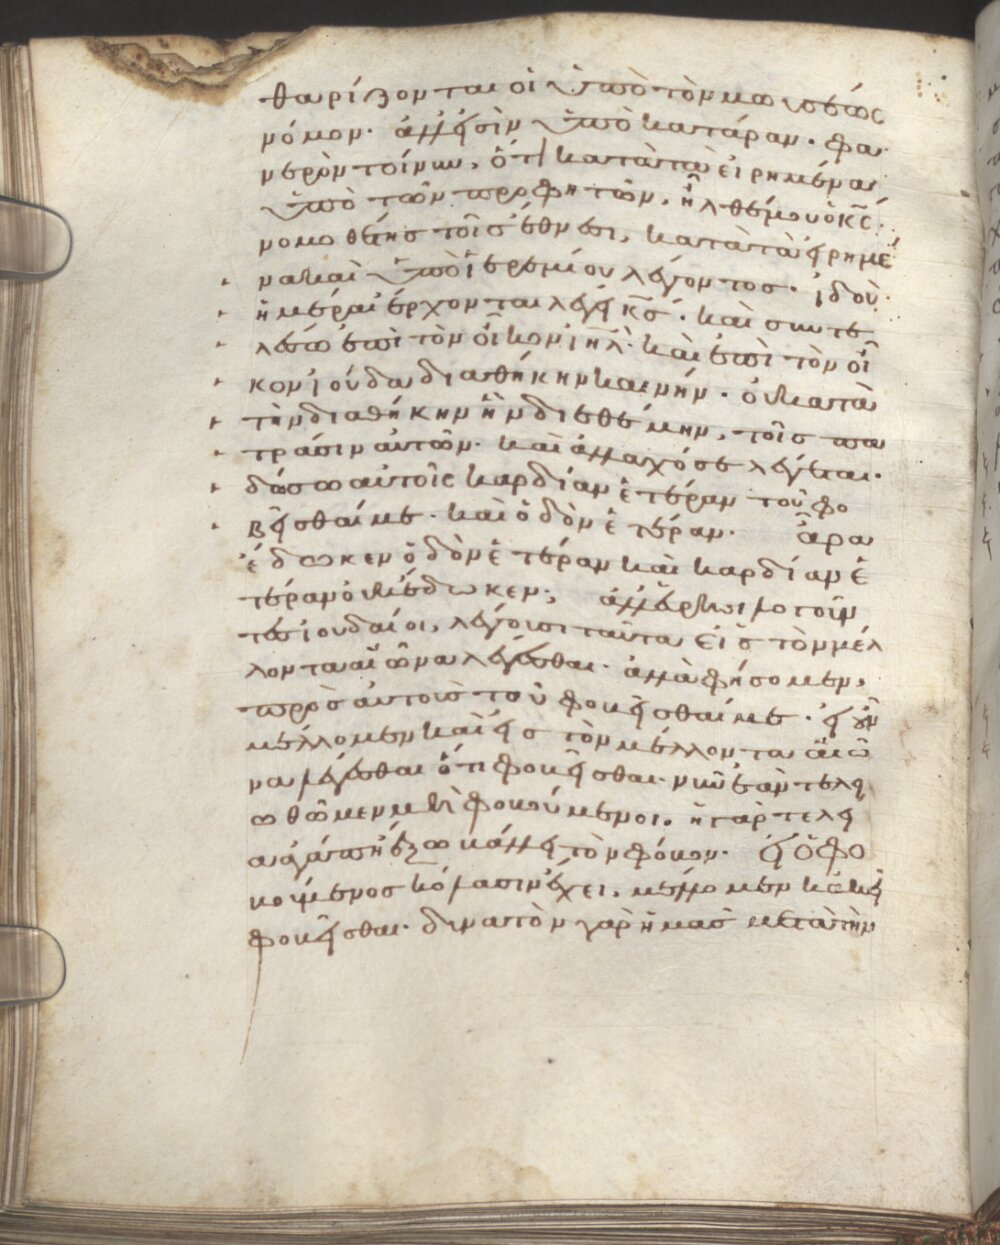 θαρίζονται οἱ ὑπὸ τὸν μωυσέως
νόμον· ἀλλ' εἰσὶν ὑπὸ κατάραν· φα
νερὸν τοίνυν, ὅτι κατὰ τὰ εἰρημένα
ὑπὸ τῶν προφητῶν, ἦλθέ μου ὁ κς̄
νομοθέτης τοῖς ἔθνεσι, κατὰ τὰ εἰρημέ
να καὶ ὑπὸ ἱερεμίου λέγοντος· ἰδοὺ
ἡμέραι ἔρχονται λέγει κς̄· καὶ συντε
λέσω ἐπὶ τὸν οἶκον ιηλ̄· καὶ ἐπὶ τὸν οἶ
κον ἰούδα διαθήκην καινήν· οὐ κατὰ
τὴν διαθήκην ἣν διεθέμην, τοῖς πα
τράσιν αὐτῶν· καὶ ἀλλαχόσε λέγεται·
δώσω αὐτοῖς καρδίαν ἑτέραν τοῦ φο
βεῖσθαί με· καὶ ὁδὸν ἑτέραν· ἆρα
ἔδωκεν ὁδὸν ἑτέραν καὶ καρδίαν ἑ
τέραν οὐκ ἔδωκεν; ἀλλ' ἐροῦσι
ἰουδαίοι, λέγουσι ταῦτα εἰς τὸν μέλ
λοντα αἰῶνα λέγεσθαι· ἀλλὰ φήσομεν,
πρὸς αὐτοὺς τοῦ φοβεῖσθαί με· εἰ οὖν
μέλλομεν καὶ εἰς τὸν μέλλοντα αἰῶ
να λέγεσθαι ὅτι φοβεῖσθαι· νῦν ἐὰν τελει
ωθῶμεν μὴ φοβούμενοι. ἡ γὰρ τελεί
α ἀγάπη ἔξω βάλλει τὸν φόβον· εἰ ὁ φο
βούμενος κόλασιν ἔχει, μέλλομεν κἀκεῖ
φοβεῖσθαι· δυνατὸν γὰρ ἡμᾶς μετὰ τὴν